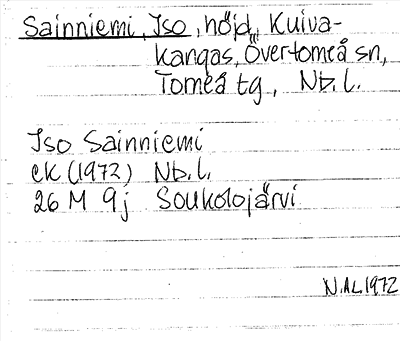 Sainniemi, Iso, höjd, Kuiva-
kangas, Övertorneå sn,
Torneå tg, Nb. l.
Iso Sainniemi
ek (1972) Nb. l.
26 M 9j Soukolojärvi
N.Al. 1972